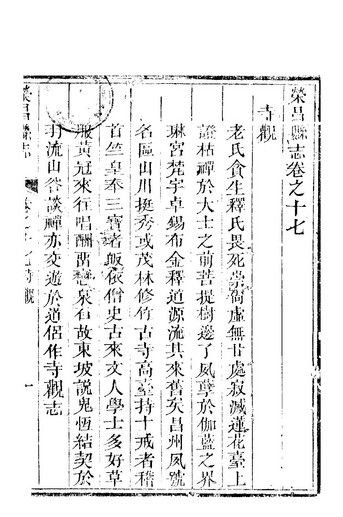 榮昌縣志卷之十七
寺觀
老氏貪生釋氏畏死崇尚虛無甘處寂滅蓮花臺上
證枯禪於大士之前菩提樹邊了夙孽於伽藍之界
琳宮梵宇卓錫布金釋道源流其來舊矣昌州夙號
名區山川挺秀或茂林修竹古寺高臺持十戒者稽
首竺皇奉三寶者皈依僧史古來文人學士多好草
服黃冠來行唱酬留戀泉石故東坡說鬼恆結契於
羽流山谷談禪亦交遊於道侶作寺觀志
榮昌縣志
卷之十七寺觀
一